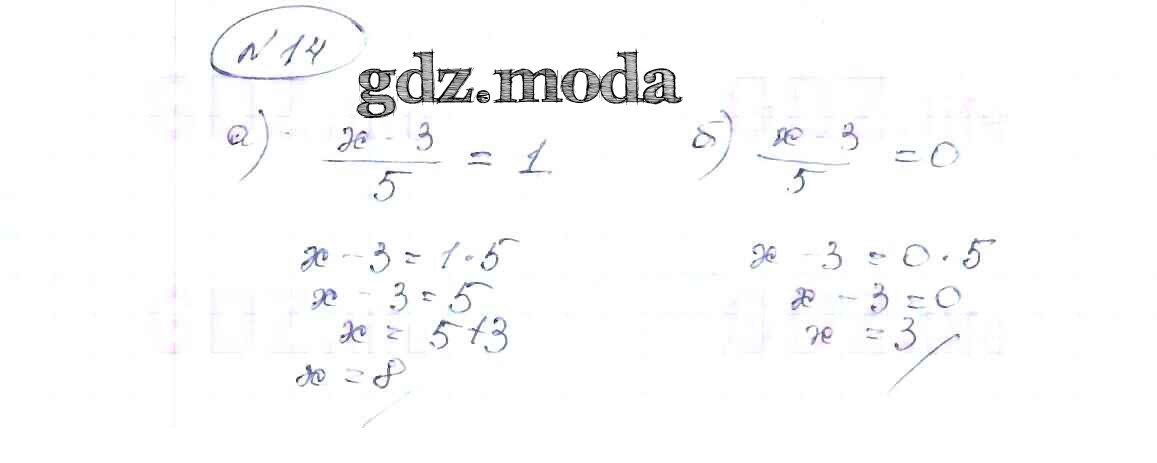 N 14
gdz.moda
а) x - 3 / 5 = 1
x - 3 = 1 · 5
x - 3 = 5
x = 5 + 3
x = 8
б) x - 3 / 5 = 0
x - 3 = 0 · 5
x - 3 = 0
x = 3